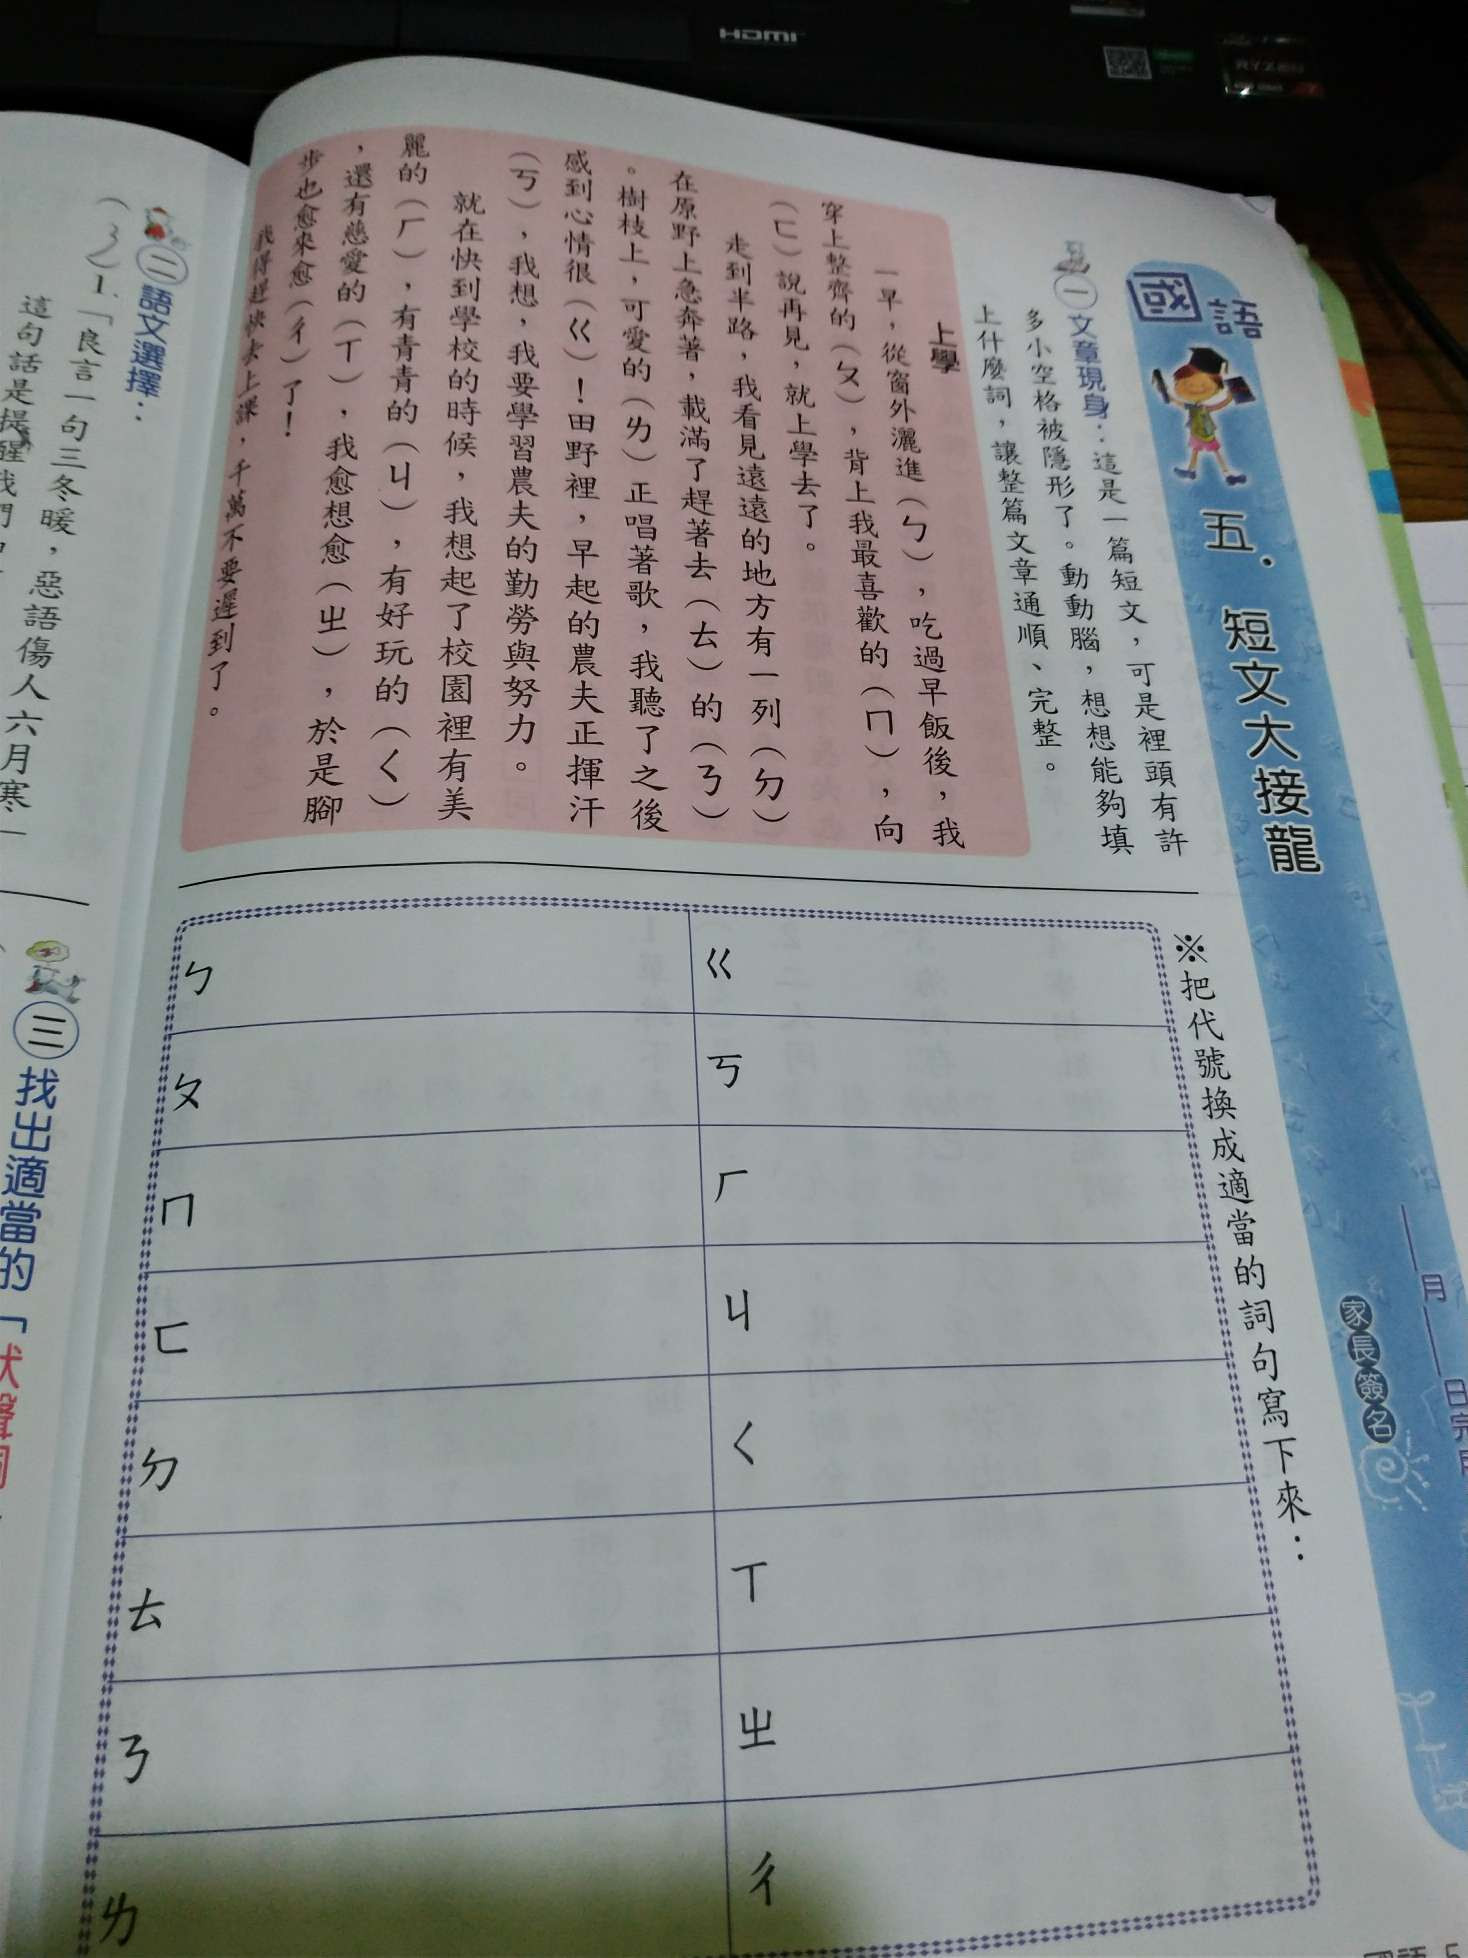 HDMI
RYZEN
國語
五．短文大接龍
月
日完
家長簽名
一文章現身：這是一篇短文，可是裡頭有許
多小空格被隱形了。動動腦，想想能夠填
上什麼詞，讓整篇文章通順、完整。
上學
一早，從窗外灑進（ㄅ），吃過早飯後，我
穿上整齊的（ㄆ），背上我最喜歡的（ㄇ），向
（ㄈ）說再見，就上學去了。
走到半路，我看見遠遠的地方有一列（ㄉ）
在原野上急奔著，載滿了趕著去（ㄊ）的（ㄋ）
。樹枝上，可愛的（ㄌ）正唱著歌，我聽了之後
感到心情很（ㄍ）！田野裡，早起的農夫正揮汗
（ㄎ），我想，我要學習農夫的勤勞與努力。
就在快到學校的時候，我想起了校園裡有美
麗的（ㄏ），有青青的（ㄐ），有好玩的（ㄑ）
，還有慈愛的（ㄒ），我愈想愈（ㄓ），於是腳
步也愈來愈（ㄔ）了！
我得趕快去上課，千萬不要遲到了。
※把代號換成適當的詞句寫下來：
ㄅ
ㄆ
ㄇ
ㄈ
ㄉ
ㄊ
ㄋ
ㄌ
ㄍ
ㄎ
ㄏ
ㄐ
ㄑ
ㄒ
ㄓ
ㄔ
二語文選擇：
（3）1.「良言一句三冬暖，惡語傷人六月寒」
這句話是提醒我們
三找出適當的「狀聲詞